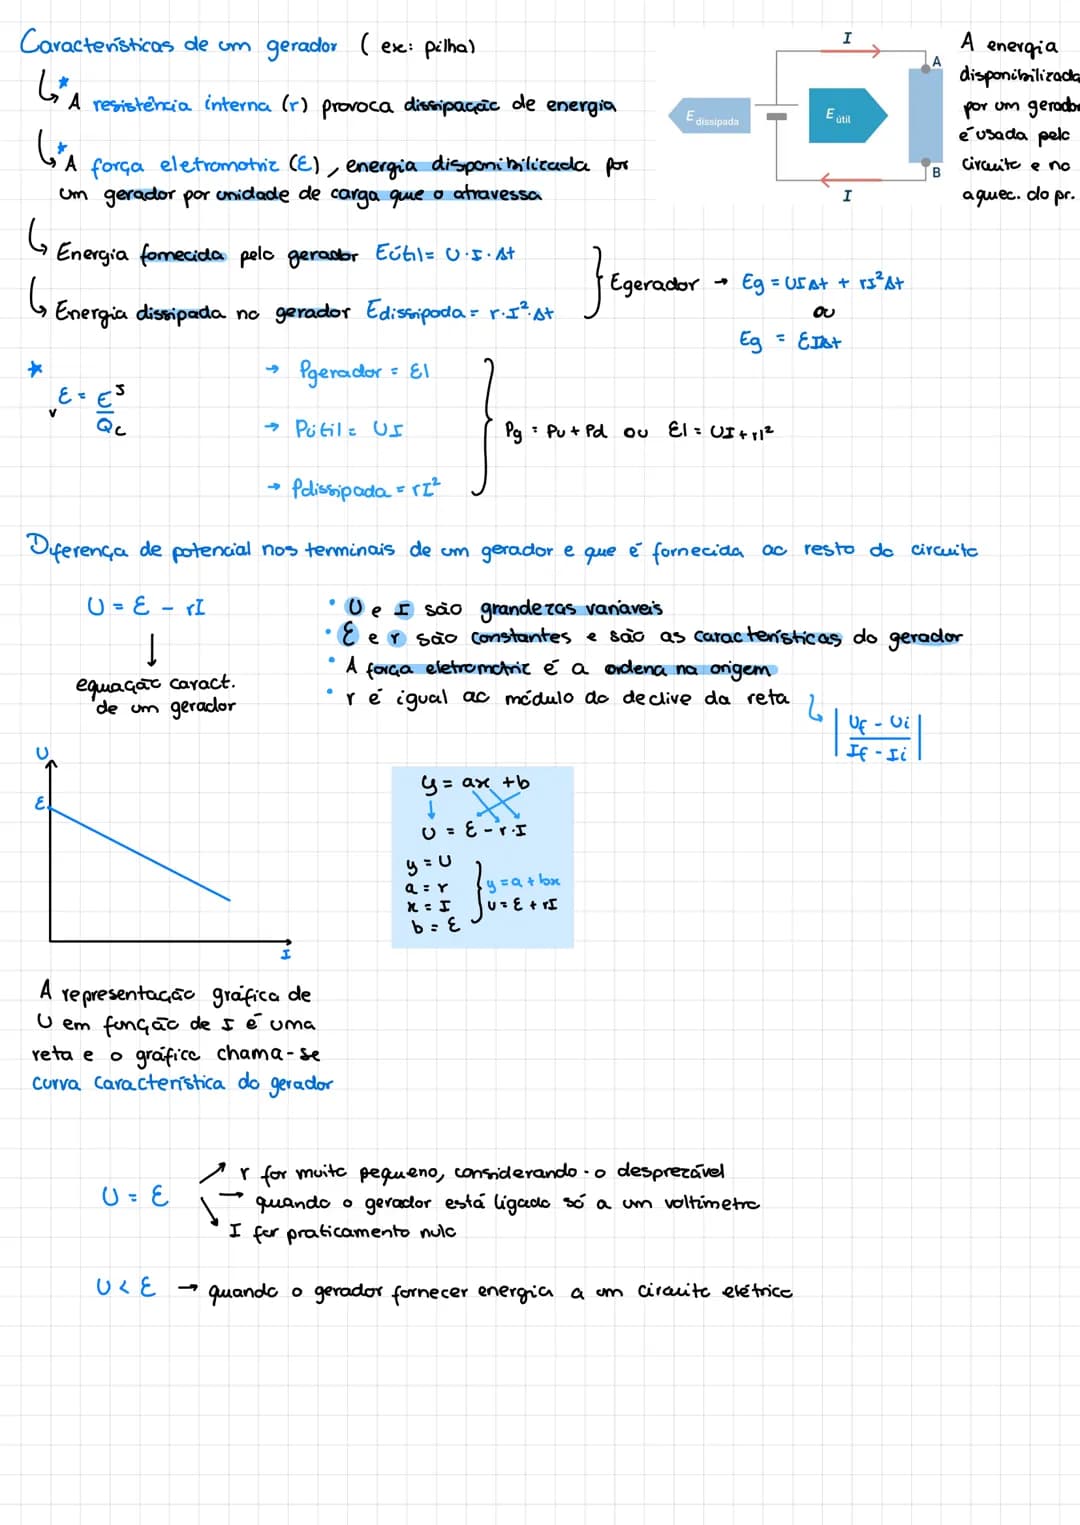 Características de um gerador (ex: pilha)
↳* A resistência interna (r) provoca dissipação de energia
↳* A força eletromotriz (Ɛ), energia disponibilizada por
um gerador por unidade de carga que o atravessa
I
A
E dissipada
E útil
B
I
A energia
disponibilizada
por um gerador
é usada pelo
circuito e no
aquec. do pr.
↳ Energia fornecida pelo gerador Eútil = U·I·Δt
↳ Energia dissipada no gerador Edissipada = r·I²·Δt
Egerador → Eg = UIΔt + rI²Δt
ou
Eg = ƐIΔt
*
Ɛ = E J
V Q C
→ Pgerador = ƐI
→ Pútil = UI
→ Pdissipada = rI²
Pg = Pu + Pd ou ƐI = UI + rI²
Diferença de potencial nos terminais de um gerador e que é fornecida ao resto do circuito
U = Ɛ - rI
↓
equação caract.
de um gerador
• U e I são grandezas variáveis
• Ɛ e r são constantes e são as características do gerador
• A força eletromotriz é a ordena na origem
• r é igual ao módulo do declive da reta
↳ | Uf - Ui |
| If - Ii |
U
Ɛ
I
y = ax + b
U = Ɛ - r·I
y = U
a = r
x = I
b = Ɛ
y = a + bx
U = Ɛ + rI
A representação gráfica de
U em função de I é uma
reta e o gráfico chama-se
curva característica do gerador
U = Ɛ
↗ r for muito pequeno, considerando-o desprezável
→ quando o gerador está ligado só a um voltímetro
↘ I for praticamento nulo
U < Ɛ → quando o gerador fornecer energia a um circuito elétrico